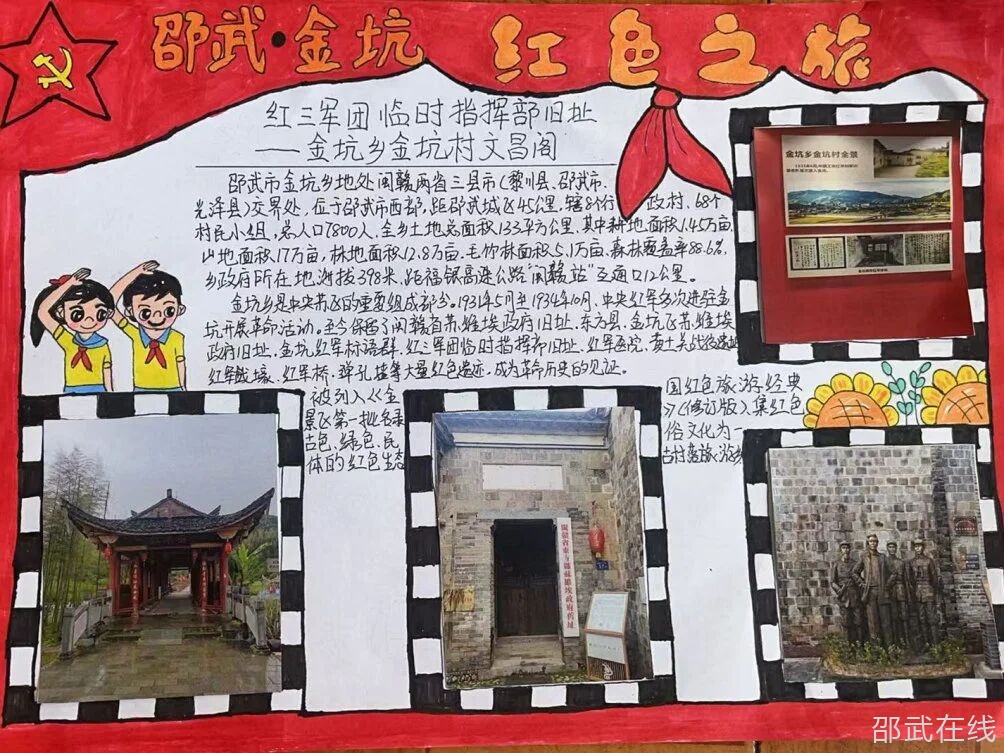 邵武·金坑 红色之旅
红三军团临时指挥部旧址
——金坑乡金坑村文昌阁
邵武市金坑乡地处闽赣两省三县市(黎川县、邵武市、
光泽县)交界处,位于邵武市西部,距邵武城区45公里,辖8个行政村、68个
村民小组,总人口7800人,全乡土地总面积133平方公里,其中耕地面积1.45万亩、
山地面积17万亩,林地面积12.8万亩、毛竹林面积5.1万亩、森林覆盖率88.6%,
乡政府所在地海拔398米,距福银高速公路“闽赣站”互通口12公里。
金坑乡是中央苏区的重要组成部分。1931年5月至1934年10月,中央红军多次进驻金
坑开展革命活动。至今保留了闽赣省苏维埃政府旧址、东方县、金坑区苏维埃
政府旧址、金坑红军标语群、红三军团临时指挥部旧址、红军医院、黄土关战役遗址
红军战壕、红军桥、弹孔墙等大量红色遗迹,成为革命历史的见证。
被列入《全国红色旅游经典
景区第一批名录》(修订版)、集红色
古色、绿色、民俗文化为一
体的红色生态古村落旅游
金坑乡金坑村全景
闽赣省东方县苏维埃政府旧址
邵武在线